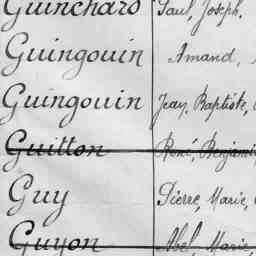 Guinchard Paul, Joseph,
Guingouin Amand,
Guingouin Jean, Baptiste,
Guitton René, Benjamin
Guy Pierre, Marie,
Guyon Abel, Marie,